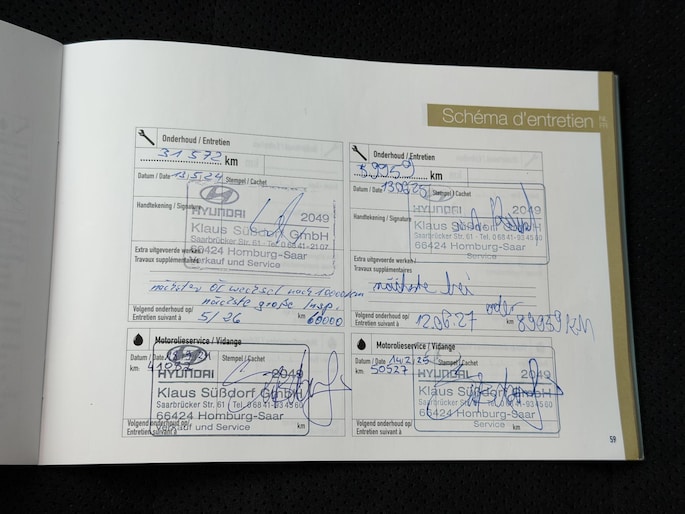 Schéma d'entretien
NL
FR
Onderhoud / Entretien
31 572 km
Datum / Date 13.5.24 Stempel / Cachet
HYUNDAI 2049
Handtekening / Signature
Klaus Süßdorf GmbH
Saarbrücker Str. 61 · Tel. 0 68 41-21 07
66424 Homburg-Saar
Verkauf und Service
Extra uitgevoerde werken/
Travaux supplémentaires
nächster Öl wechsel nach 10000km
nächste große Insp.
Volgend onderhoud op/
Entretien suivant à 5/26 km 60000
Onderhoud / Entretien
59959 km
Datum / Date Stempel / Cachet
HYUNDAI 2049
Handtekening / Signature
Klaus Süßdorf GmbH
Saarbrücker Str. 61 · Tel. 0 68 41-93 45 60
66424 Homburg-Saar
Service
Extra uitgevoerde werken/
Travaux supplémentaires
nächste bei
oder
Volgend onderhoud op/
Entretien suivant à 12.06.27 km 89959 KM
Motorolieservice / Vidange
Datum / Date Stempel / Cachet
km
HYUNDAI 2049
Klaus Süßdorf GmbH
Saarbrücker Str. 61 · Tel. 0 68 41-93 45 60
66424 Homburg-Saar
Verkauf und Service
Volgend onderhoud op/
Entretien suivant à km
Motorolieservice / Vidange
Datum / Date 14.2.25 Stempel / Cachet
km 50527
HYUNDAI 2049
Klaus Süßdorf GmbH
Saarbrücker Str. 61 · Tel. 0 68 41-93 45 60
66424 Homburg-Saar
Service
Volgend onderhoud op/
Entretien suivant à km
59